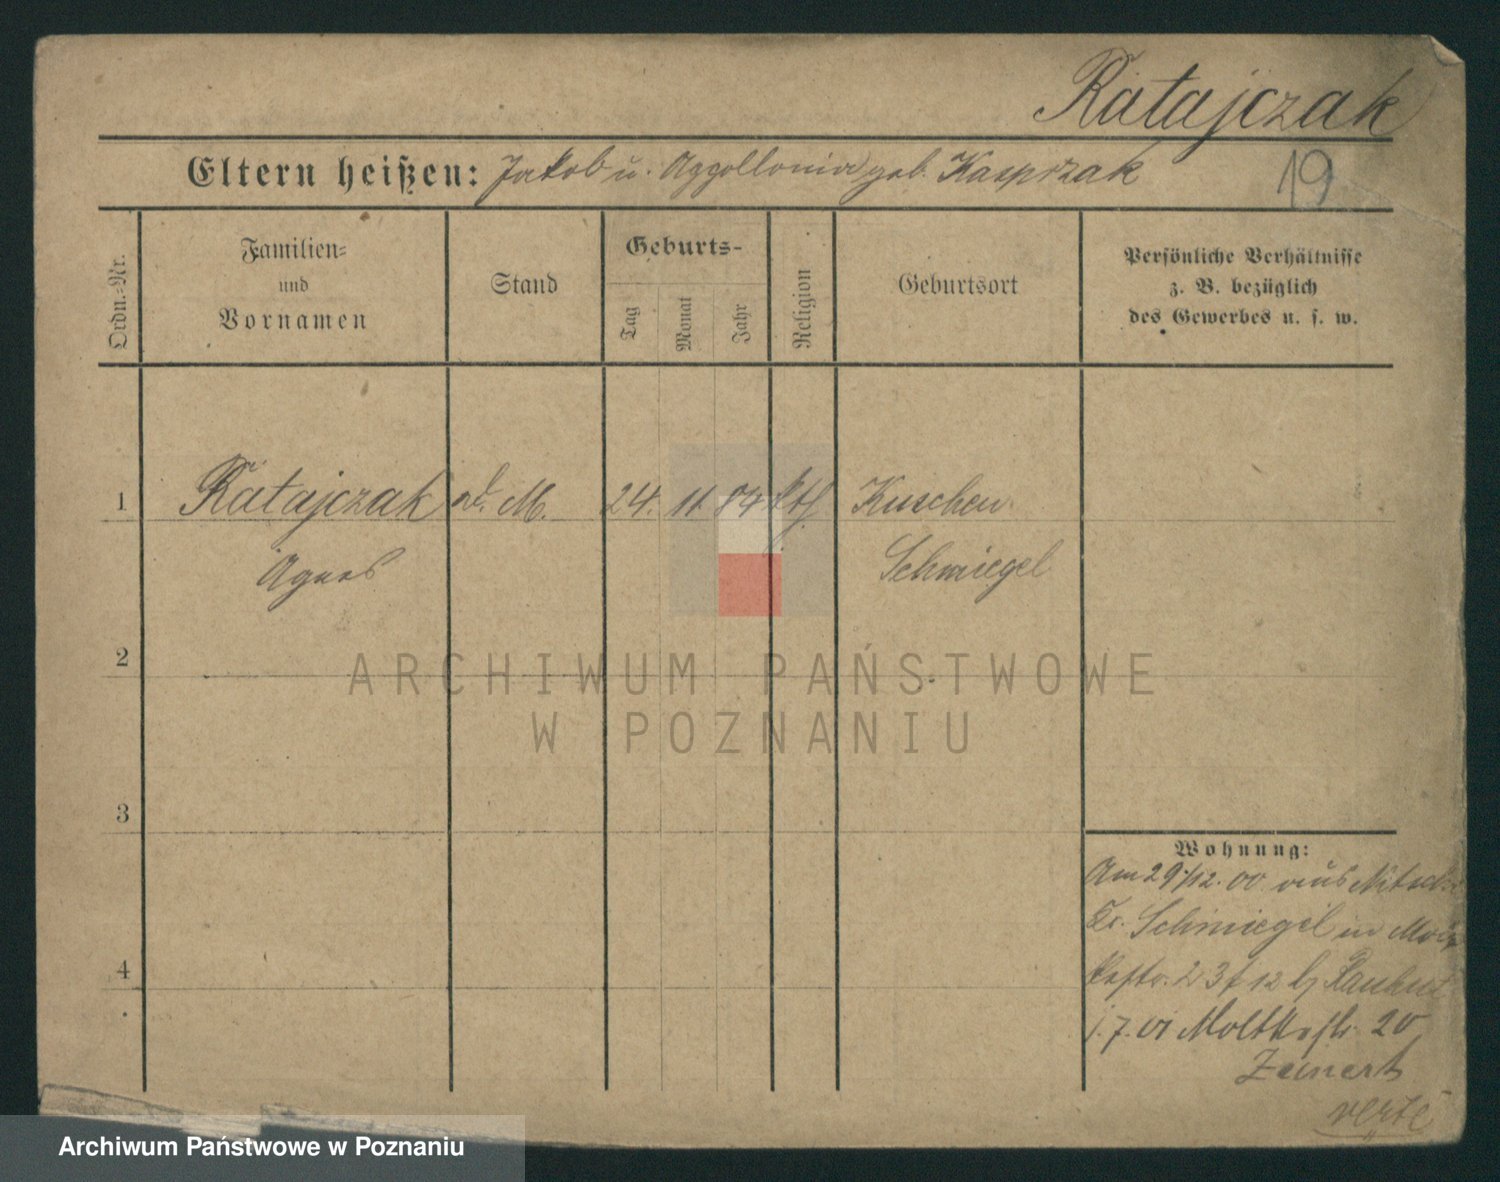 Ratajczak
Eltern heißen: Jakob u. Appollonia geb. Kasprzak
19
Ordn.-Nr.
Familien-
und
Vornamen
Stand
Geburts-
Tag
Monat
Jahr
Religion
Geburtsort
Persönliche Verhältnisse
z. B. bezüglich
des Gewerbes u. s. w.
1 Ratajczak d. M. 24. 11. 84 kth. Kuschen
Agnes Schmiegel
2
3
4
ARCHIWUM PAŃSTWOWE
W POZNANIU
Wohnung:
Am 29./12. 00 aus
Kr. Schmiegel in
2 3 f 12 b/
1. 7. 01 Moltkestr. 20
Zeinert
verte
Archiwum Państwowe w Poznaniu